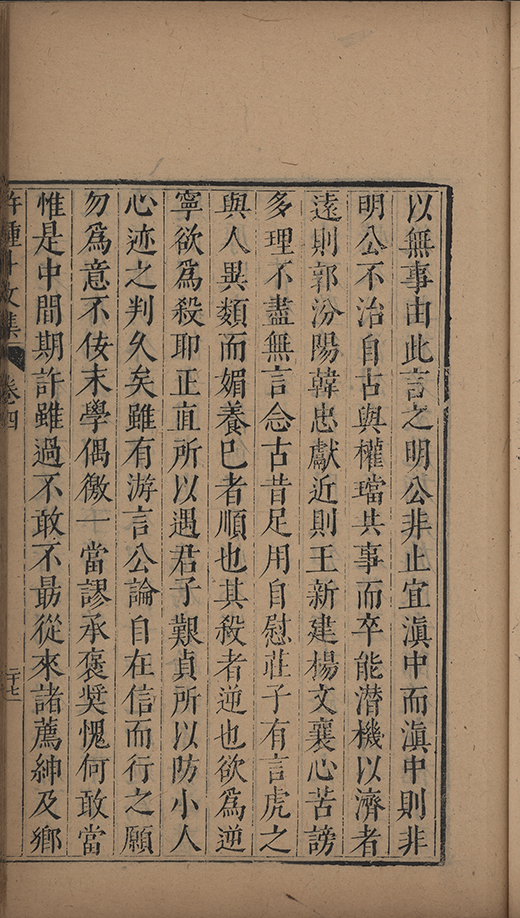 以無事由此言之明公非止宜滇中而滇中則非
明公不治自古與權璫共事而卒能潜機以濟者
遠則郭汾陽韓忠獻近則王新建楊文襄心苦謗
多理不盡無言念古昔足用自慰莊子有言虎之
與人異類而媚養已者順也其殺者逆也欲為逆
寧欲為殺耶正直所以遇君子艱貞所以防小人
心迹之判久矣雖有游言公論自在信而行之願
勿為意不佞末學偶徼一當謬承褒奨愧何敢當
惟是中間期許雖過不敢不朂從來諸薦紳及鄉
許鍾斗文集 卷四 二十七